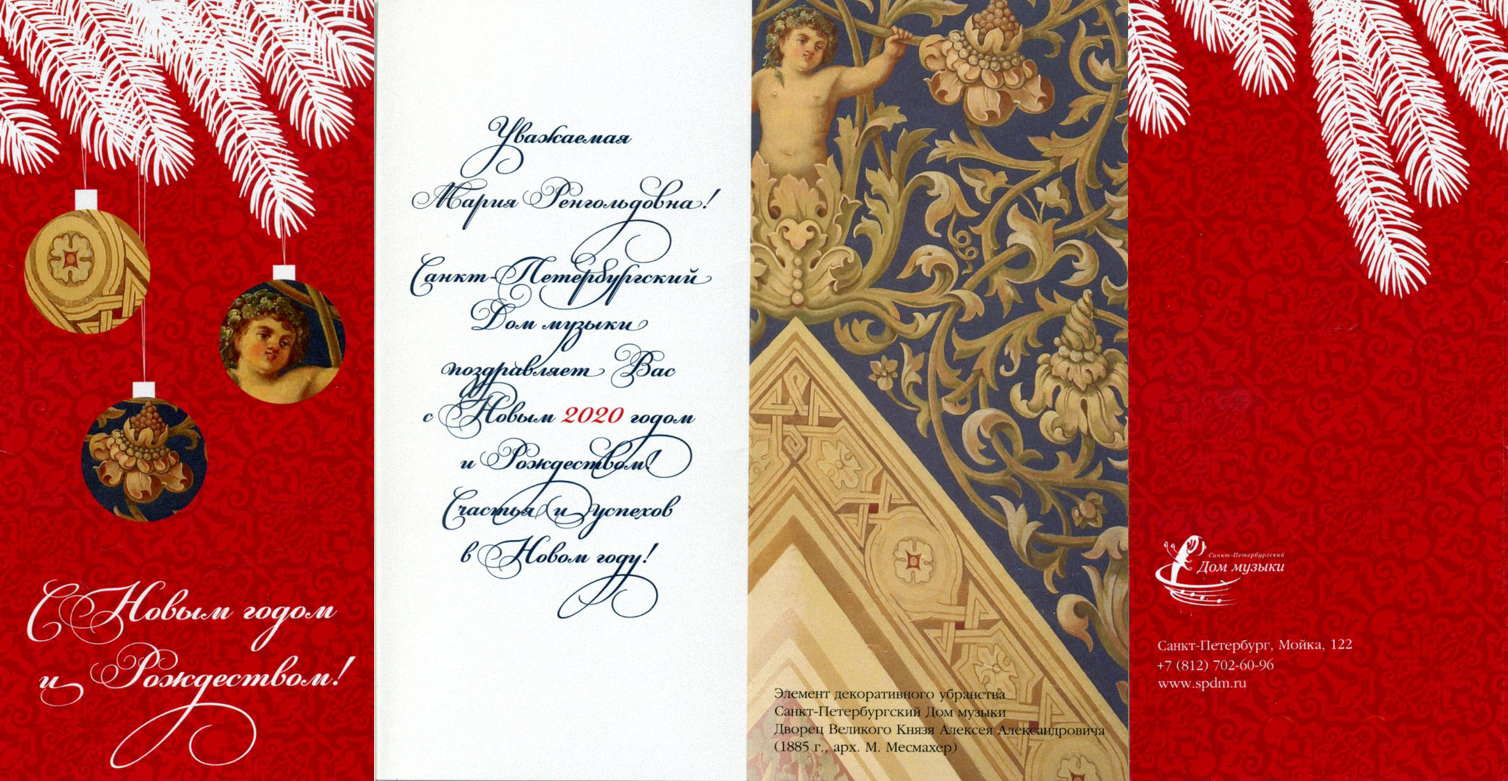 С Новым годом
и Рождеством!
Уважаемая
Мария Ренгольдовна!
Санкт-Петербургский
Дом музыки
поздравляет Вас
с Новым 2020 годом
и Рождеством!
Счастья и успехов
в Новом году!
Элемент декоративного убранства
Санкт-Петербургский Дом музыки
Дворец Великого Князя Алексея Александровича
(1885 г., арх. М. Месмахер)
Санкт-Петербургский
Дом музыки
Санкт-Петербург, Мойка, 122
+7 (812) 702-60-96
www.spdm.ru